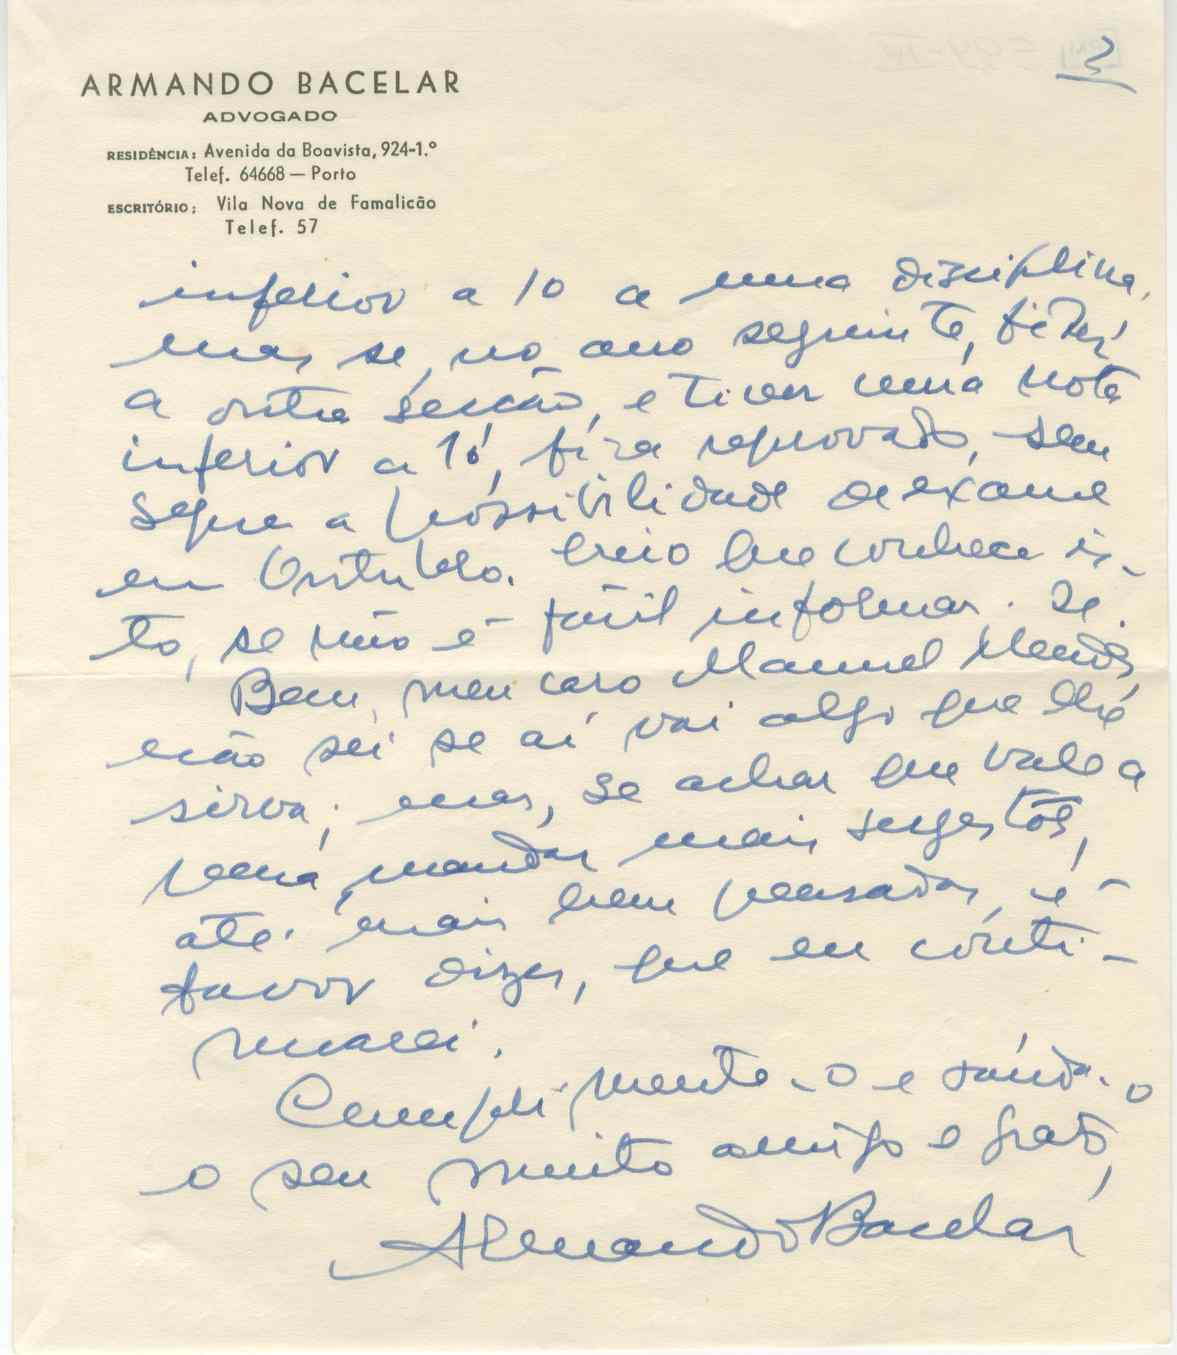 2
ARMANDO BACELAR
ADVOGADO
RESIDÊNCIA: Avenida da Boavista, 924-1.º
Telef. 64668 — Porto
ESCRITÓRIO: Vila Nova de Famalicão
Telef. 57
inferior a 10 a uma disciplina,
mas se, no ano seguinte, fizer
a outra secção, e tiver uma nota
inferior a 10, fica reprovado, sem
sequer a possibilidade de exame
em Outubro. Creio que conhece is-
to, se não é fácil informar-se.
Bem, meu caro Manuel Mendes,
não sei se aí vai algo que lhe
sirva; mas, se achar que vale a
pena mandar mais sugestões,
até mais bem pensadas, é
favor dizer, que eu conti-
nuarei.
Cumprimenta-o e saúda-o
o seu muito amigo e grato,
Armando Bacelar